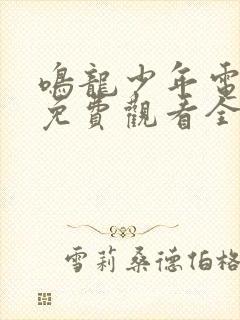 鳴龍少年電
免費觀看全
雪莉桑德伯格